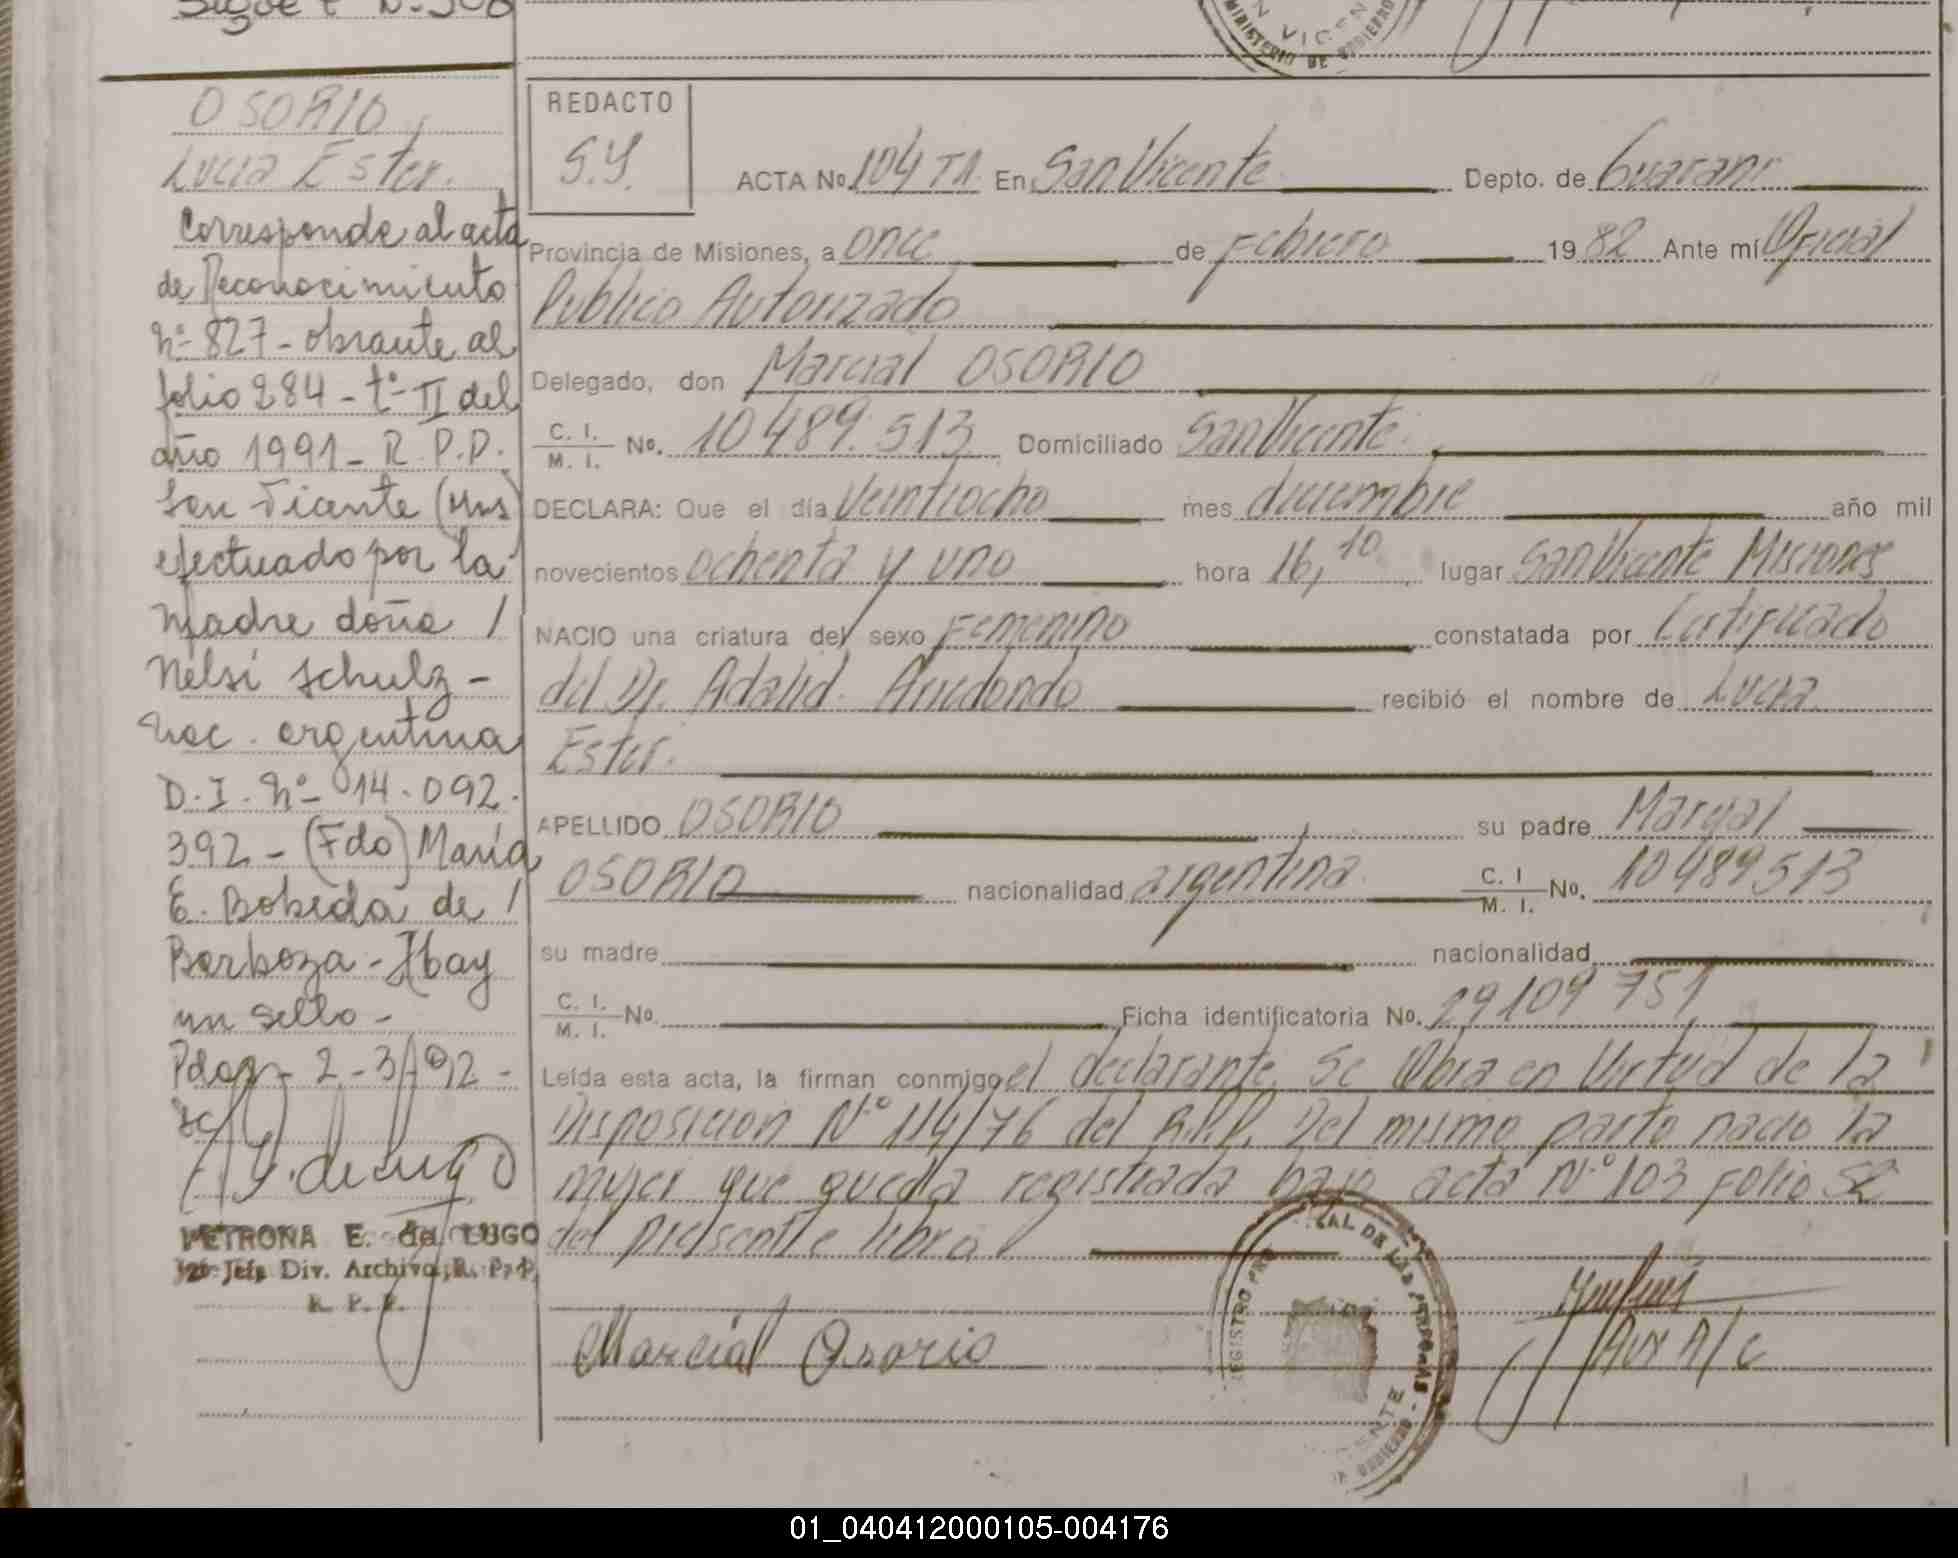 Sigue t N.308
OSORIO
Lucia Ester.
Corresponde al acta
de Reconocimiento
Nº 827 - obrante al
folio 284 - tº II del
año 1991 - R.P.P.
San Vicente (Mns)
efectuado por la
madre doña /
Nelsi Schulz -
nac. argentina
D.I. Nº 14.092.
392 - (Fdo) María
E. Bobeda de /
Barboza - Hay
un sello -
Pdas - 2 - 3/92 -
PETRONA E. de LUGO
Jefe Div. Archivo, R. P. P.
R. P. P.
REDACTO
S.Y.
ACTA No. 104 T1. En San Vicente Depto. de Guarani
Provincia de Misiones, a once de Febrero 1982 Ante mí Oficial
Publico Autorizado
Delegado, don Marcial OSORIO
C. I. / M. I. No. 10 489.513 Domiciliado San Vicente.
DECLARA: Que el día Veintiocho mes diciembre año mil
novecientos ochenta y uno hora 16,10 lugar San Vicente Misiones
NACIO una criatura del sexo Femenino constatada por Certificado
del Dr. Adalid. Arredondo recibió el nombre de Lucia
Ester.
APELLIDO OSORIO su padre Marcial
OSORIO nacionalidad argentina. C. I / M. I. No. 10489513
su madre nacionalidad
C. I. / M. I. No. Ficha identificatoria No. 29109 751
Leída esta acta, la firman conmigo el declarante. Se Obra en Virtud de la
Disposicion Nº 114/76 del R.P.P. Del mismo parto nacio la
mujer que queda registrada bajo acta Nº 103 Folio 52
del presente libro
Marcial Osorio
Aux A/C
01_040412000105-004176